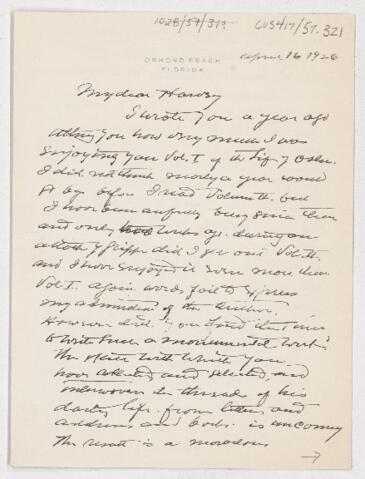 1028/57/319
CUS417/57.321
ORMOND BEACH
FLORIDA
April 16 1926
My dear Harvey
I wrote you a year ago
telling you how very much I was
enjoying your Vol. I of the life of Osler.
I did not think nearly a year would
go by before I read Volume II. but
I have been awfully busy since then
and only two weeks ago. during an
attack of grippe did I get out Vol. II.
and I have enjoyed it even more than
Vol. I. again words fail to express
my admiration of the author.
However did you find the time
to write such a monumental work.
The skill with which you
have collected and selected, and
interwoven the threads of his
daily life. from letters and
address and books. is uncanny
The result is a marvelous